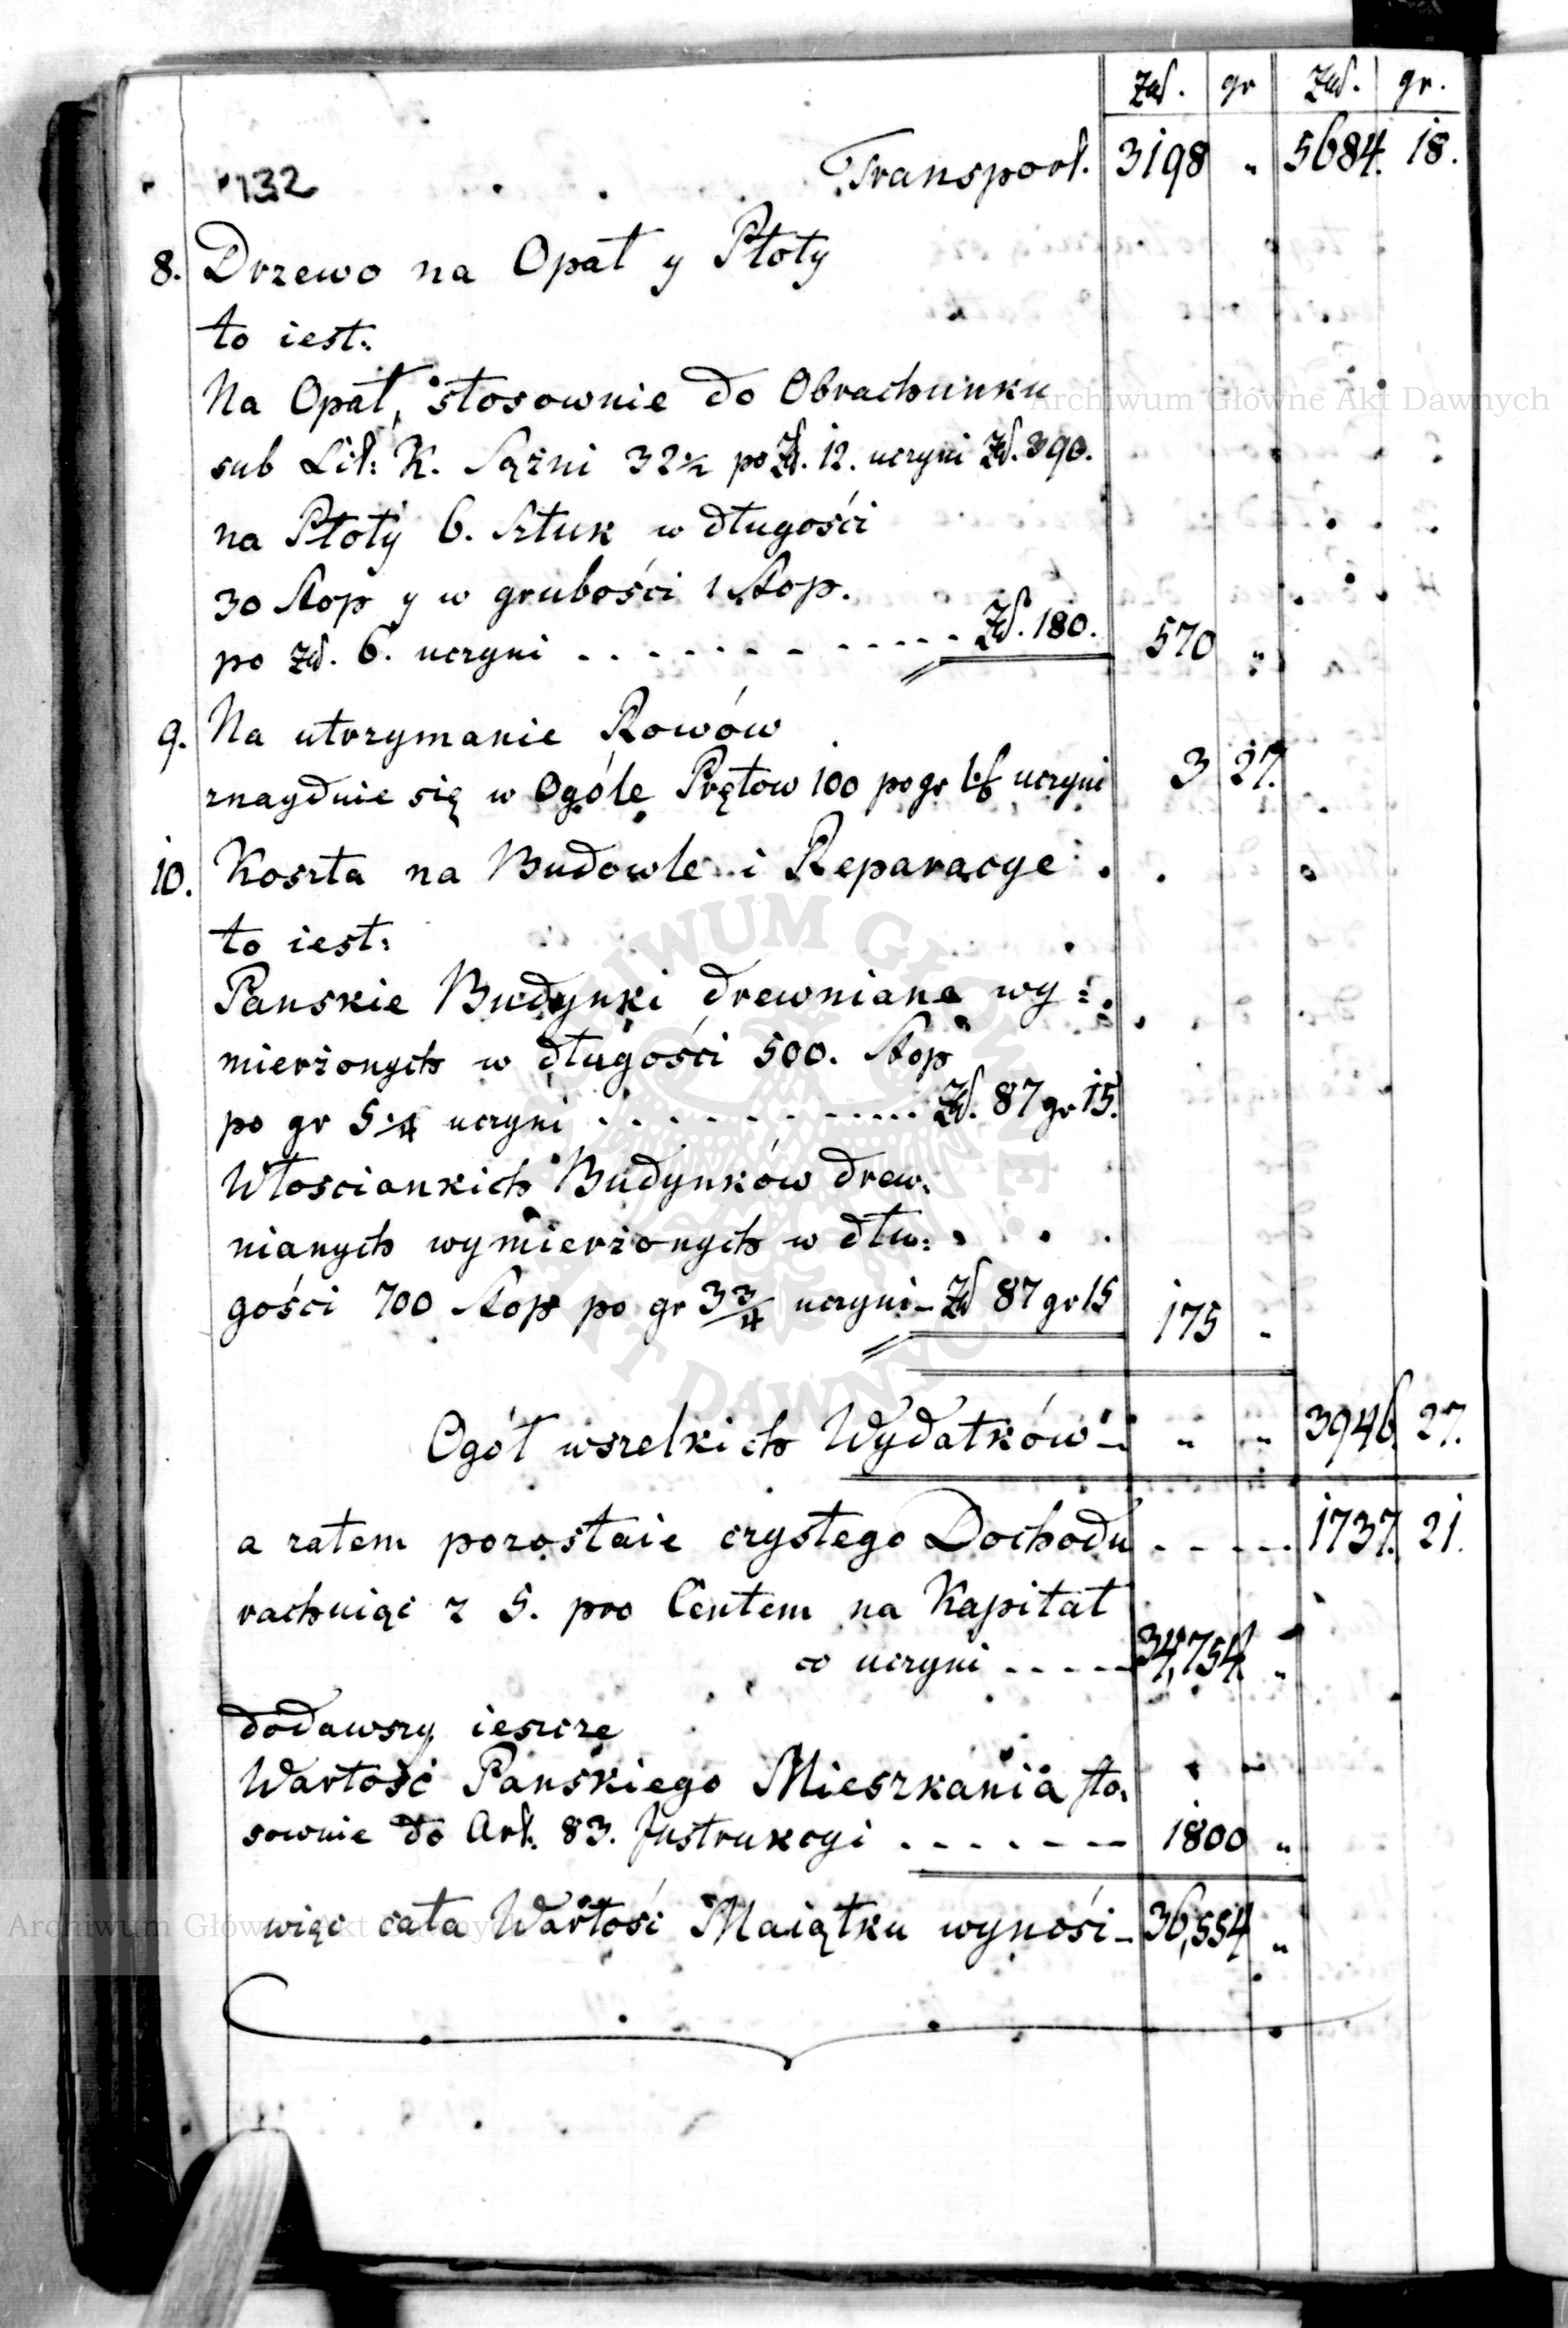 Zł. gr Zł. gr.
132 Transport. 3198 " 5684. 18.
8. Drzewo na Opał y Płoty
to iest:
Na Opał, stosownie do Obrachunku
sub Lit: K. Sążni 32½ po Zł. 12. uczyni Zł. 390.
na Płoty 6. Sztuk w długości
30 Stop y w grubości 1 Stop.
po zł. 6. uczyni - - - - - - - - - - - Zł. 180. 570 "
9. Na utrzymanie Rowów
znaydnie się w Ogóle Prętow 100 po gr uczyni 3 27.
10. Koszta na Budowle i Reparacye
to iest:
Panskie Budynki drewniane wy:
mierzonych w długości 500. Stop
po gr 5¼ uczyni - - - - - - - - - - Zł. 87 gr 15.
Włosciankich Budynków drew:
nianych wymierzonych w dłu:
gości 700 Stop po gr 3¾ uczyni - Zł 87 gr 15 175 "
Ogół wszelkich Wydatków - " " 3946. 27.
a zatem pozostaie czystego Dochodu - - - - 1737. 21.
rachuiąc z 5. pro Centem na Kapitał
co uczyni - - - - - 34,754. "
dodawszy ieszcze
Wartość Panskiego Mieszkania sto:
sownie do Art. 83. Instrukcyi - - - - - - 1800 "
więc cała Wartość Maiątku wynośi - 36,554 "
Archiwum Główne Akt Dawnych
ARCHIWUM GŁÓWNE AKT DAWNYCH
Archiwum Główne Akt Dawnych